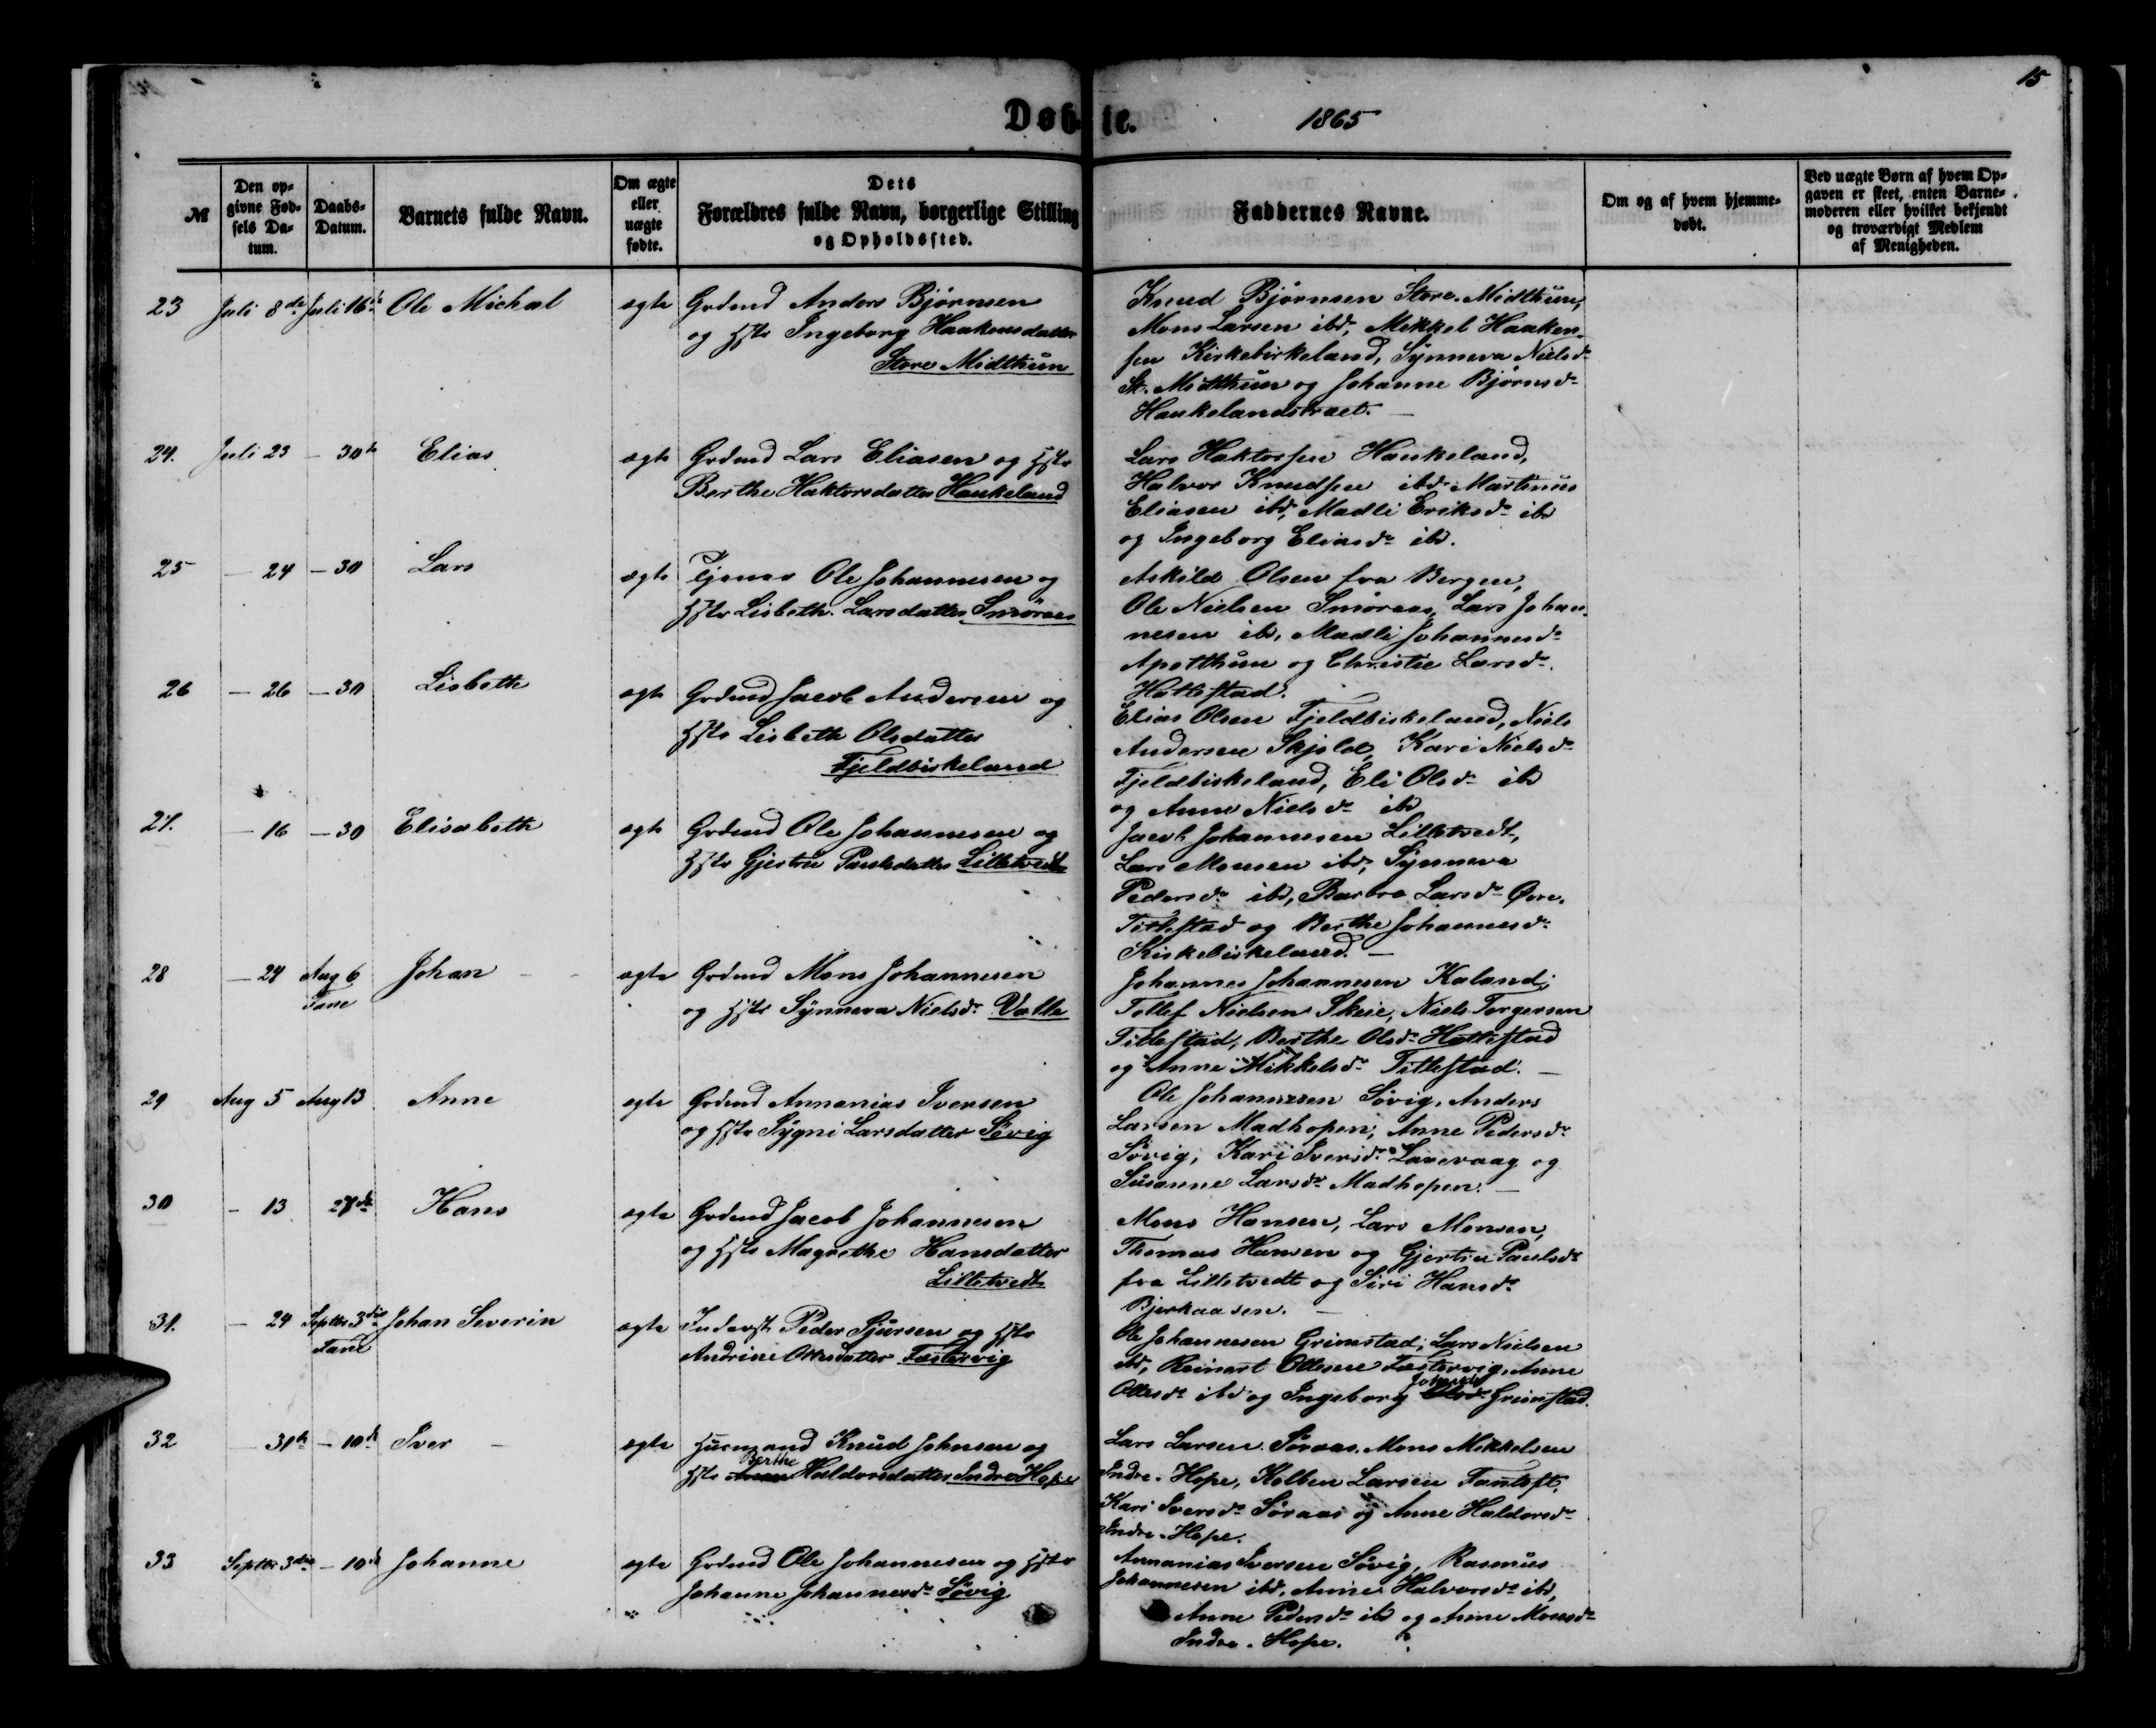 15
Døbte. 1865
№
Den opgivne Fødsels Datum.
Daabs-Datum.
Barnets fulde Navn.
Om ægte eller uægte fødte.
Dets Forældres fulde Navn, borgerlige Stilling og Opholdssted.
Faddernes Navne.
Om og af hvem hjemmedøbt.
Ved uægte Børn af hvem Opgaven er skeet, enten Barnemoderen eller hvilket bekjendt og troværdigt Medlem af Menigheden.
23 Juli 8de Juli 16de Ole Michal ægte Grdmd Anders Bjørnsen
og Hstr Ingeborg Haakonsdatter
Store Midthun
Knud Bjørnsen Store-Midthun,
Mons Larsen ibd, Mikkel Haaken-
sen Kirkebirkeland, Synneva Nielsdr
St. Midthun og Johanne Bjørnsdr
Haukelandstræet. –
24. Juli 23 – 30te Elias ægte Grdmd Lars Eliasen og Hstr
Berthe Haktorsdatter Haukeland
Lars Haktorsen Haukeland,
Halvor Knudsen ibd Martinus
Eliasen ibd, Madli Eriksdr ibd
og Ingeborg Eliasdr ibd.
25 – 24 – 30 Lars ægte Tjener Ole Johannesen og
Hstr Lisbeth Larsdatter Smöraas
Askild Olsen fra Bergen,
Ole Nielsen Smøraas, Lars Johan-
nesen ibd, Madli Johannesdr
Apetthun og Christie Larsdr
Hattestad.
26 – 26 – 30 Lisbeth ægte Grdmd Jacob Andersen og
Hstr Lisbeth Olsdatter
Fjeldbirkeland
Elias Olsen Fjeldbirkeland, Niels
Andersen Skjold, Kari Nielsdr
Fjeldbirkeland, Eli Olsdr ibd
og Anne Nielsdr ibd
27. – 16 – 30 Elisabeth ægte Grdmd Ole Johannesen og
Hstr Gjertru Paulsdatter Lilletvedt
Jacob Johannesen Lilletvedt,
Lars Monsen ibd, Synneva
Pedersdr ibd, Barbra Larsdr Øvre-
Titlestad og Berthe Johannesdr
Kirkebirkeland. –
28 – 24 Aug 6 Johan ægte Grdmd Mons Johannesen
Fane
og Hstr Synneva Nielsdr Valle
Johannes Johannesen Kaland,
Tollef Nielsen Skeie, Niels Torgersen
Titlestad, Berthe Olsdr Hattestad
og Anne Mikkelsdr Titlestad. –
29 Aug 5 Aug 13 Anne ægte Grdmd Annanias Iversen
og Hstr Sygni Larsdatter Søvig
Ole Johannesen Søvig, Anders
Larsen Madhopen, Anne Pedersdr
Søvig, Kari Iversdr Lavevaag og
Susanne Larsdr Madhopen. –
30 – 13 27de Hans ægte Grdmd Jacob Johannesen
og Hstr Magrethe Hansdatter
Lilletvedt
Mons Hansen, Lars Monsen,
Thomas Hansen og Gjertru Paulsdr
fra Lilletvedt og Siri Hansdr
Bjerkaasen. –
31. – 24 Septbr 3die Johan Severin ægte Inderst Peder Sjursen og Hstr
Fane
Andrine Ottesdatter Fæstervig
Ole Johannesen Grimstad, Lars Nielsen
ibd, Reinert Ottesen Fæstervig, Anne
Ottesdr ibd og Ingeborg Olsdr Grimstad.
32 – 31te – 10de Iver ægte Husmand Knud Johnsen og
Berthe
Hstr Anne Haldorsdatter Indre Hope
Lars Larsen Søraas, Mons Mikkelsen
Indre-Hope, Kolben Larsen Fantoft,
Kari Iversdr Søraas og Anne Haldorsdr
Indre-Hope.
33 Septbr 3die – 10de Johanne ægte Grdmd Ole Johannesen og Hstr
Johanne Johannesdr Søvig
Annanias Iversen Søvig, Rasmus
Johannesen ibd, Anne Halvorsdr ibd,
Anne Pedersdr ibd og Anne Monsdr
Indre-Hope.